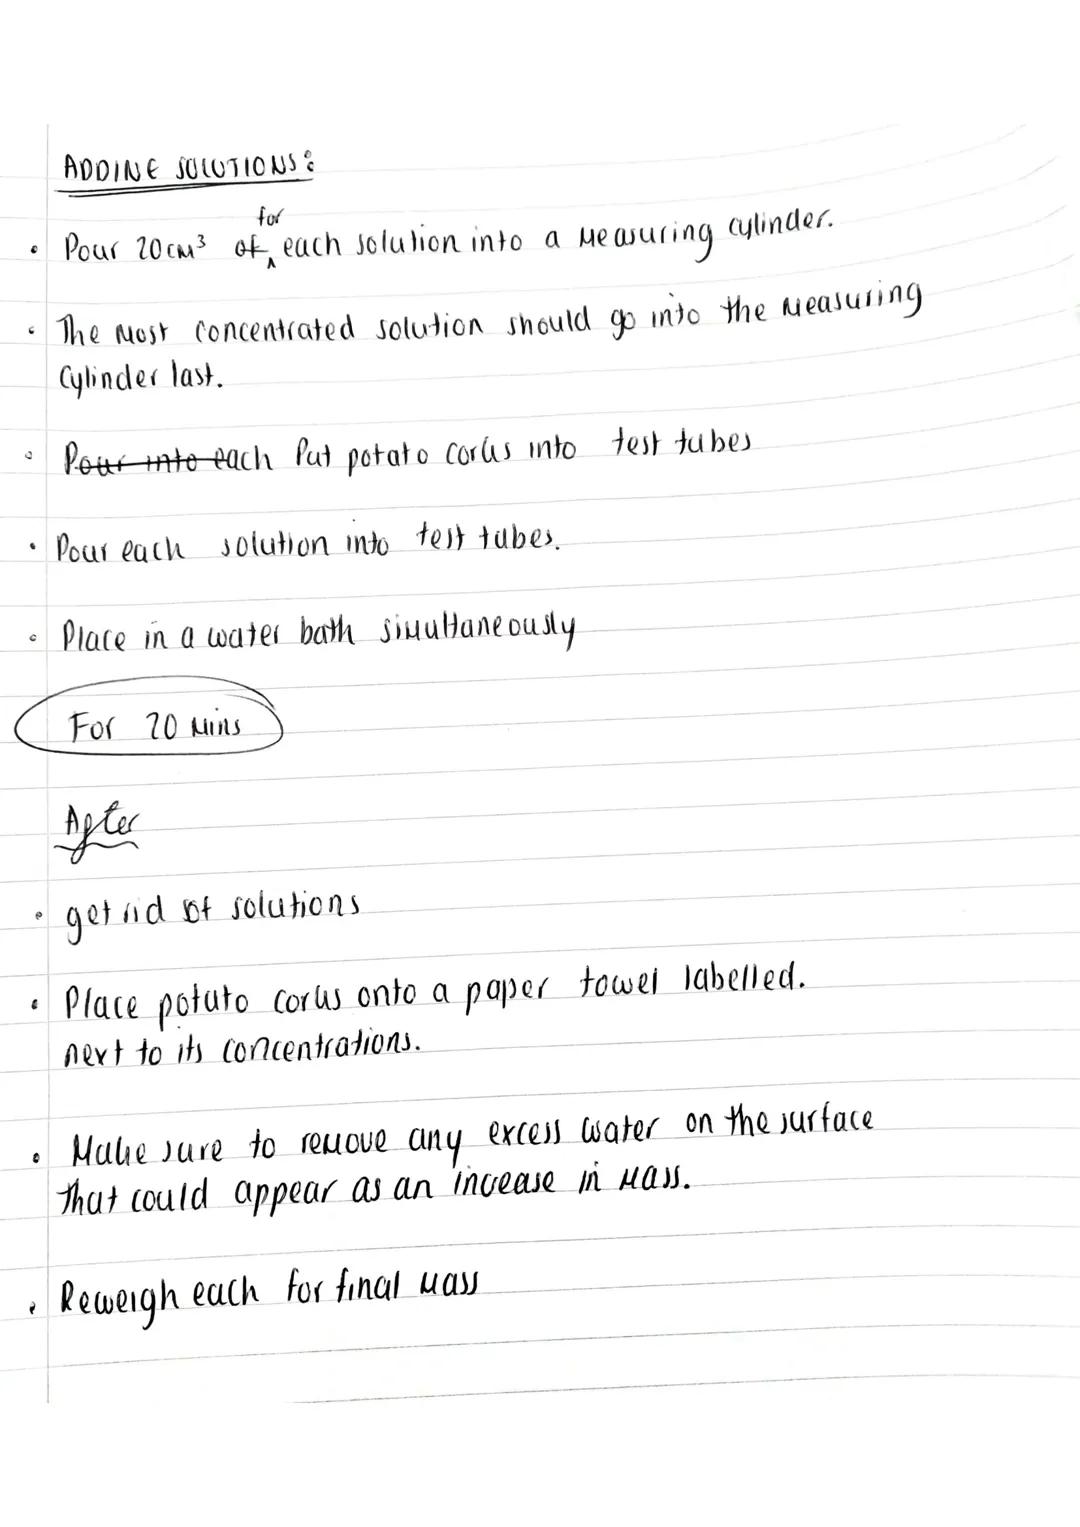 ADDING SOLUTIONS:
for
• Pour 20cm³ of ^ each solution into a measuring cylinder.
• The most concentrated solution should go into the measuring
Cylinder last.
• Pour into each Put potato corks into test tubes
• Pour each solution into test tubes.
• Place in a water bath simultaneously
For 20 mins
After
• get rid of solutions
• Place potato corks onto a paper towel labelled.
next to its concentrations.
• Make sure to remove any excess water on the surface
that could appear as an increase in mass.
• Reweigh each for final mass